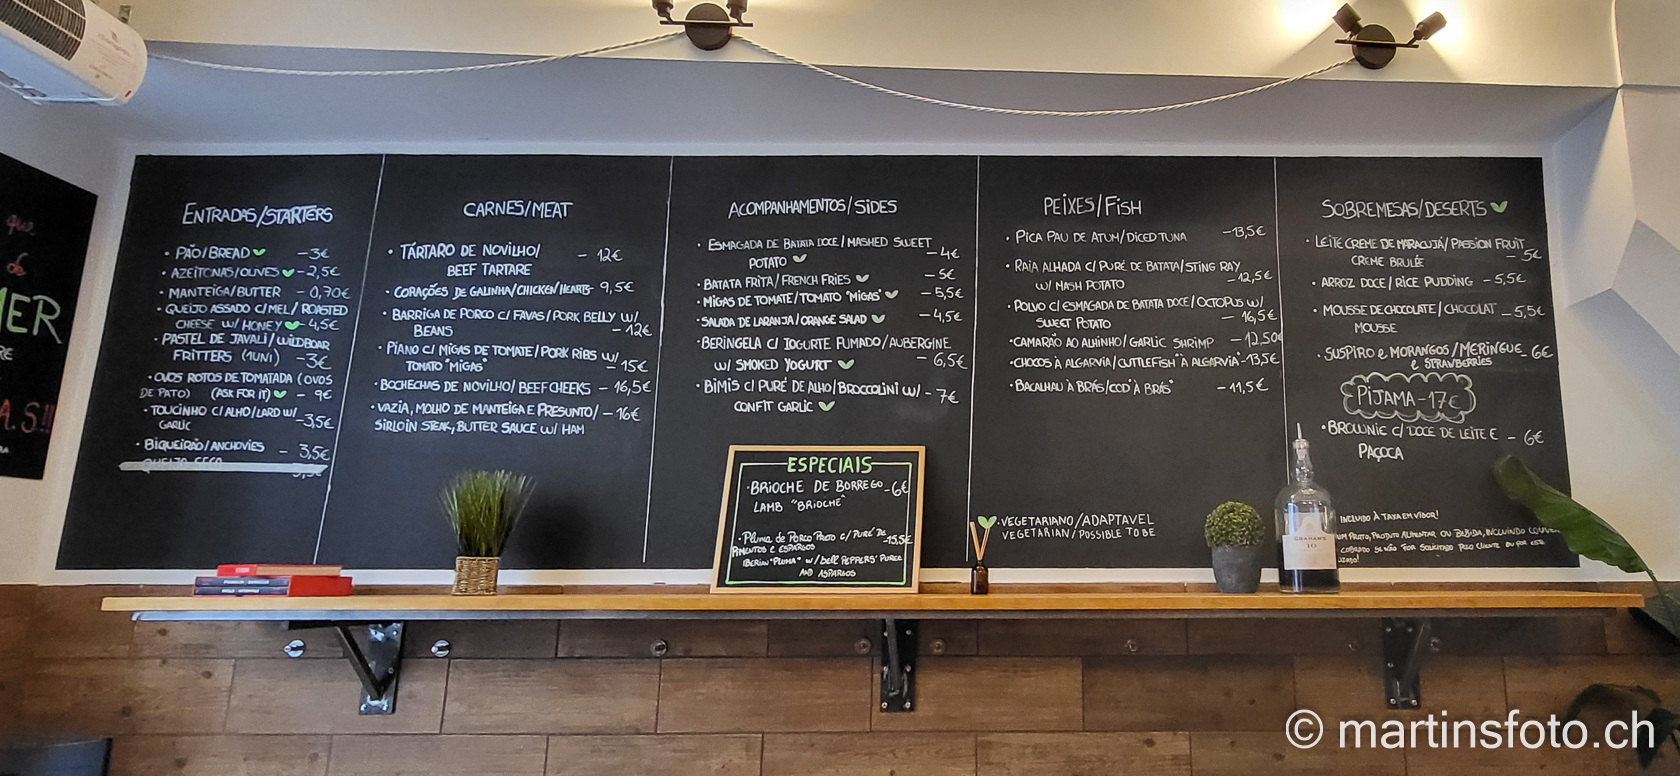 que
de
MER
RE
A.S!!
RA
ENTRADAS/STARTERS
PÃO/BREAD -3€
AZEITONAS/OLIVES -2,5€
MANTEIGA/BUTTER - 0,70€
QUEIJO ASSADO C/MEL/ ROASTED
CHEESE W/ HONEY - 4,5€
PASTEL DE JAVALI/WILDBOAR
FRITTERS (1UNI) -3€
OVOS ROTOS DE TOMATADA (OVOS
DE PATO) (ASK FOR IT) - 9€
TOUCINHO C/ALHO/LARD W/ -3,5€
GARLIC
BIQUEIRÃO/ANCHOVIES - 3,5€
CARNES/MEAT
TÁRTARO DE NOVILHO/ - 12€
BEEF TARTARE
CORAÇÕES DE GALINHA/CHICKEN HEARTS- 9,5€
BARRIGA DE PORCO C/FAVAS/PORK BELLY W/
BEANS -12€
PIANO C/ MIGAS DE TOMATE/PORK RIBS W/
TOMATO "MIGAS" - 15€
BOCHECHAS DE NOVILHO/BEEF CHEEKS - 16,5€
VAZIA, MOLHO DE MANTEIGA E PRESUNTO/ - 16€
SIRLOIN STEAK, BUTTER SAUCE W/ HAM
ACOMPANHAMENTOS/SIDES
ESMAGADA DE BATATA DOCE/MASHED SWEET
POTATO -4€
BATATA FRITA/FRENCH FRIES - 5€
MIGAS DE TOMATE/TOMATO "MIGAS" - 5,5€
SALADA DE LARANJA/ORANGE SALAD - 4,5€
BERINGELA C/ IOGURTE FUMADO/AUBERGINE
W/ SMOKED YOGURT - 6,5€
BIMIS C/ PURÉ DE ALHO/BROCCOLINI W/ - 7€
CONFIT GARLIC
ESPECIAIS
BRIOCHE DE BORREGO -6€
LAMB "BRIOCHE"
Pluma de PORCO PRETO C/ PURÉ DE -15,5€
PIMENTOS E ESPARGOS
IBERIAN "PLUMA" W/ bell PEPPERS PUREE
AND ASPARGOS
PEIXES/FISH
PICA PAU DE ATUM/DICED TUNA -13,5€
RAIA ALHADA C/ PURÉ DE BATATA/STING RAY
W/ MASH POTATO - 12,5€
POLVO C/ESMAGADA DE BATATA DOCE/OCTOPUS W/
SWEET POTATO - 16,5€
CAMARÃO AO ALHINHO/GARLIC SHRIMP - 12,50€
CHOCOS À ALGARVIA/CUTTLEFISH "À ALGARVIA" -13,5€
BACALHAU À BRÁS/COD "À BRÁS" - 11,5€
VEGETARIANO/ADAPTAVEL
VEGETARIAN/POSSIBLE TO BE
SOBREMESAS/DESERTS
LEITE CREME DE MARACUJÁ/PASSION FRUIT
CREME BRULÉE - 5€
ARROZ DOCE/RICE PUDDING - 5,5€
MOUSSE DE CHOCOLATE/CHOCOLAT - 5,5€
MOUSSE
SUSPIRO e MORANGOS/MERINGUE - 6€
e STRAWBERRIES
PIJAMA-17€
BROWNIE C/DOCE DE LEITE E - 6€
PAÇOCA
INCLUIDO À TAXA EM VIGOR!
UM PRATO, PRODUTO ALIMENTAR OU BEBIDA, INCLUINDO COUVERT
COBRADO SE NÃO FOR SOLICITADO PELO CLIENTE OU POR ESTE
GRAHAM'S
10
© martinsfoto.ch